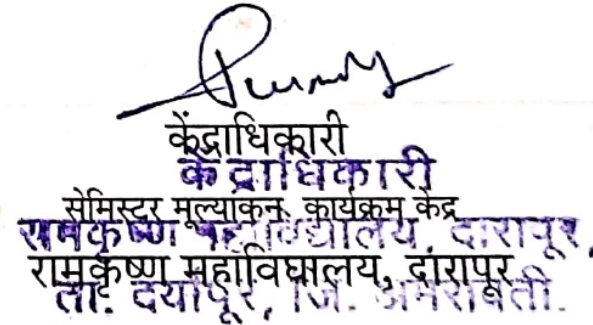 केंद्राधिकारी
केंद्राधिकारी
सेमिस्टर मूल्यांकन कार्यक्रम केंद्र
रामकृष्ण महाविद्यालय, दारापूर,
रामकृष्ण महाविद्यालय, दारापूर
ता. दर्यापूर, जि. अमरावती.